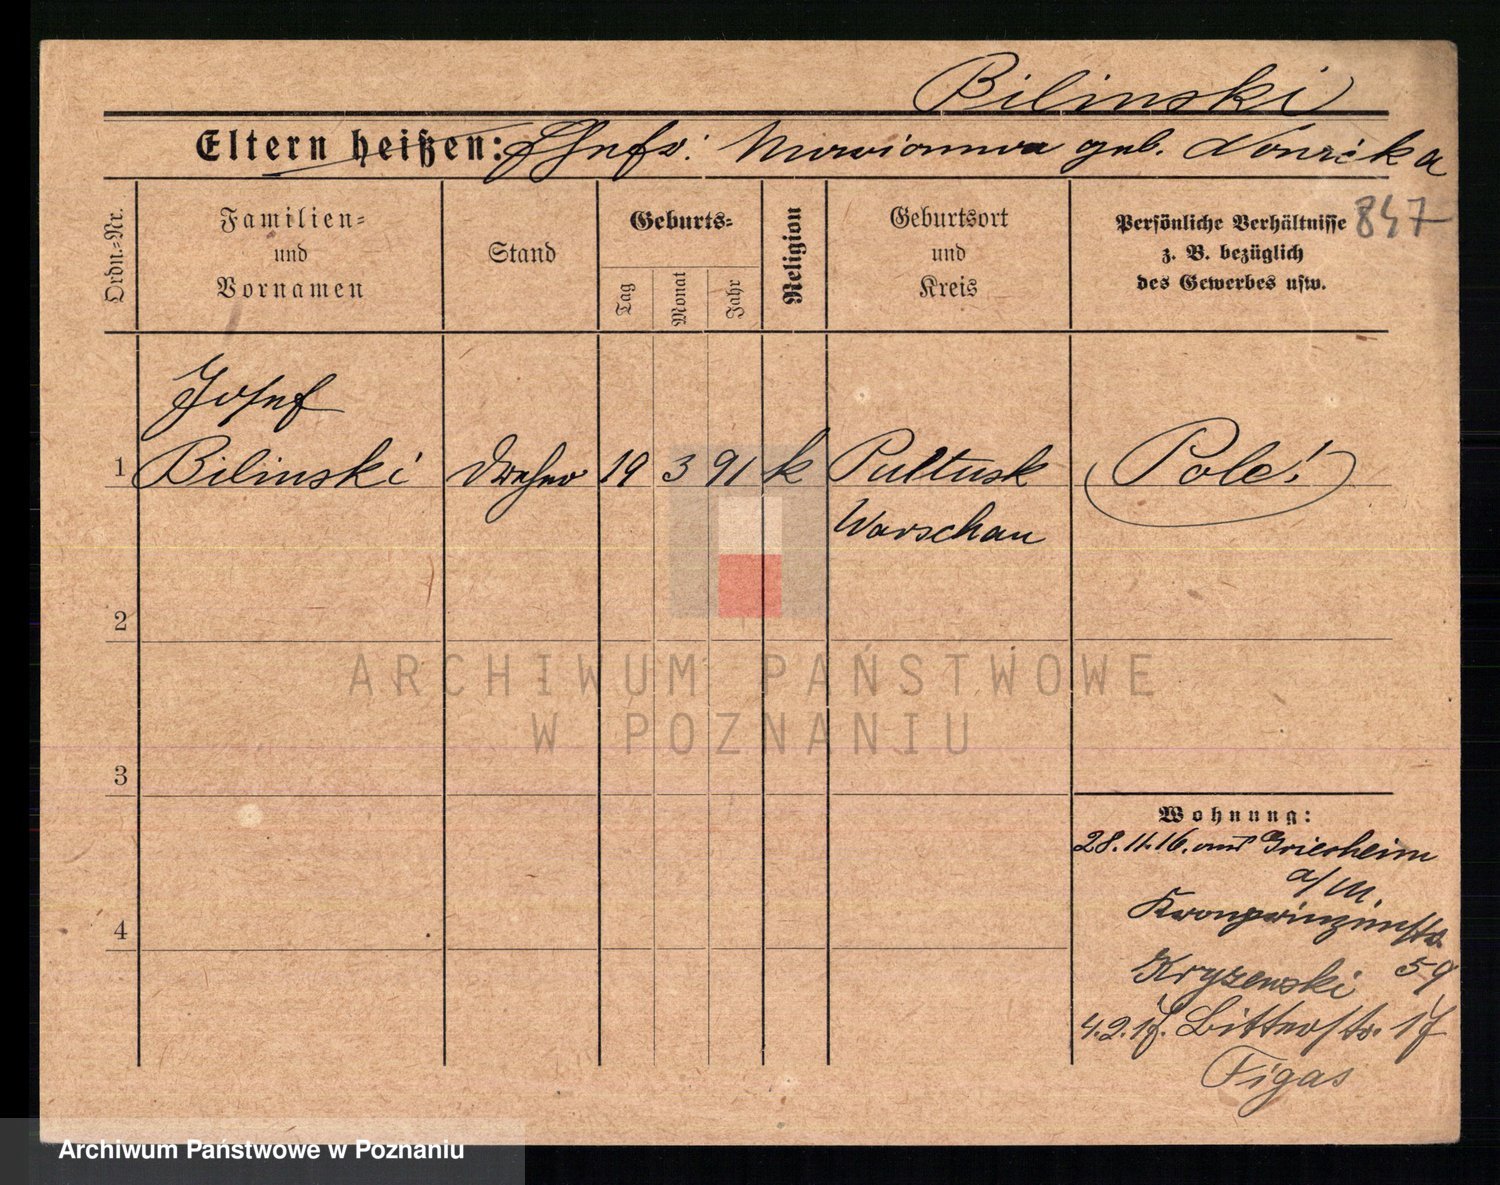 Bilinski
Eltern heißen: Ehefr: Marianna geb. Nonrcka
Ordn.=Nr.
Familien=
und
Vornamen
Stand
Geburts=
Tag
Monat
Jahr
Religion
Geburtsort
und
Kreis
Persönliche Verhältnisse
z. B. bezüglich
des Gewerbes usw.
847
Josef
1 Bilinski Dreher 19 3 91 k Pultusk Pole!
Warschau
2
3
4
Wohnung:
28.11.16. aus Griesheim
a/M.
Kronprinzenstr.
59
Kryzenski
4.2.17. Bitterstr. 17
Figas
ARCHIWUM PAŃSTWOWE
W POZNANIU
Archiwum Państwowe w Poznaniu